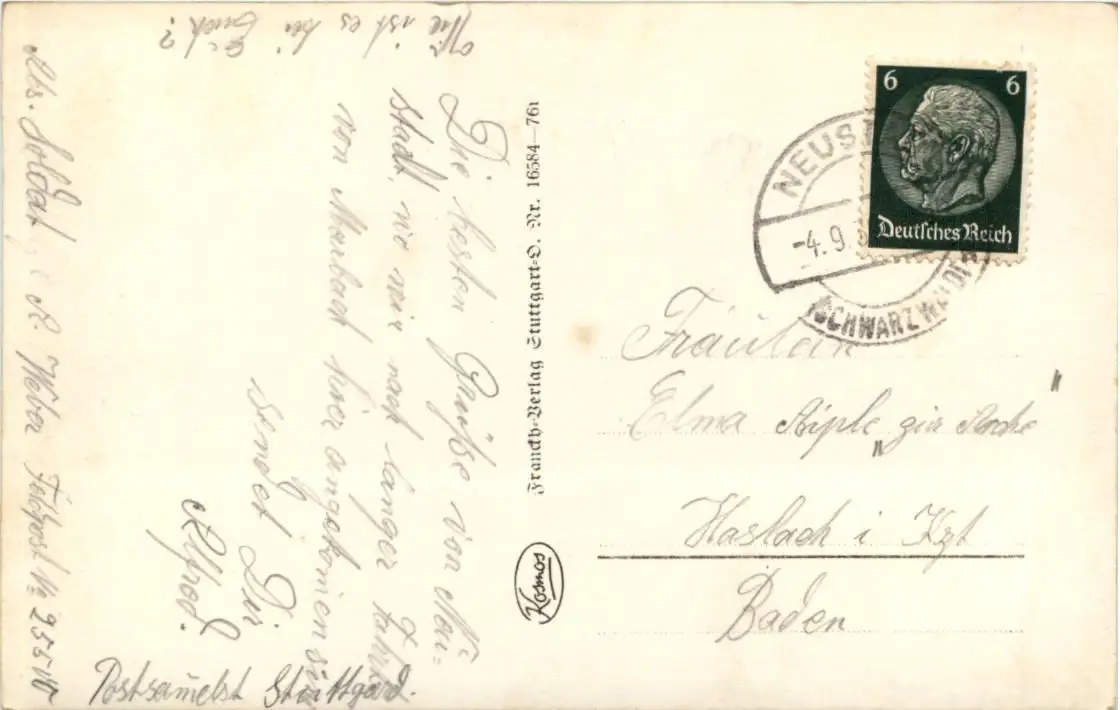 Wie ist es bei
Euch?
Die besten Grüße von Neu-
stadt, wo wir nach langer Fahrt
von Marbach hier angekomen sind
sendet Dir
Alfred.
Abs. Soldat A. Weber Feldpost No 25510
Postsamelst Stuttgard.
Franckh-Verlag Stuttgart-O. Nr. 16584—761
Kosmos
6 6
Deutsches Reich
-4.9.
SCHWARZWALD
Fräulein
Elma Aiple "zur Arche"
Haslach i Kzt
Baden